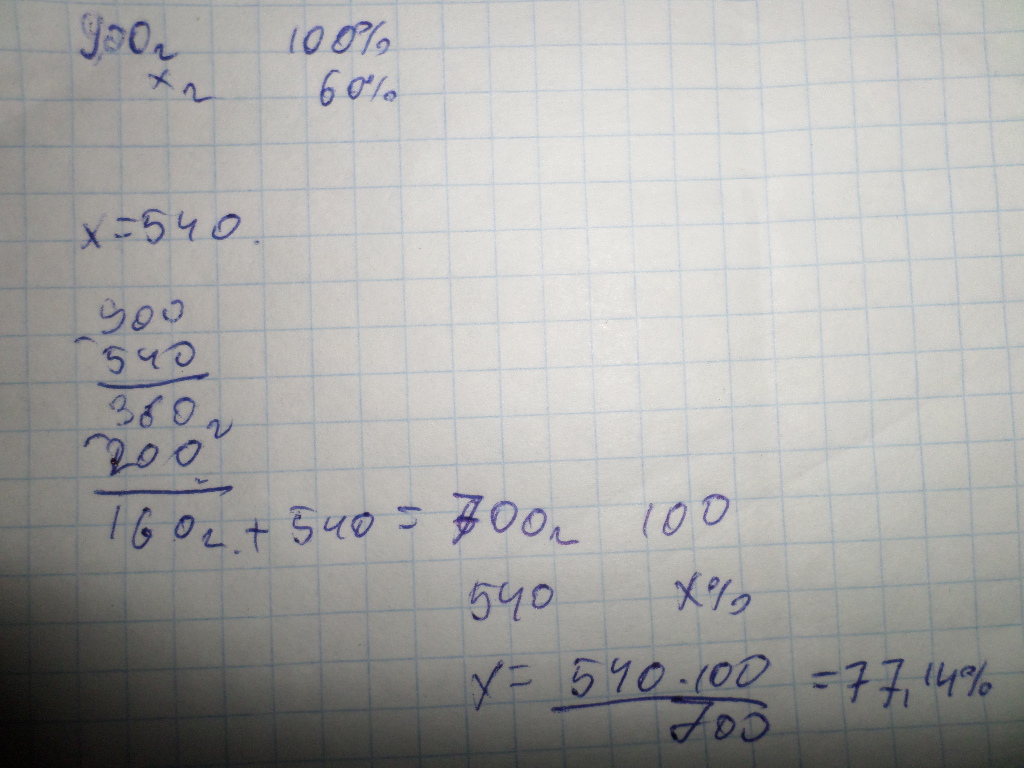 900г 100%
xг 60%
x=540.
900
- 540
360г
- 200
160г.+540= 700г 100
540 x%
x= 540·100 =77,14%
700